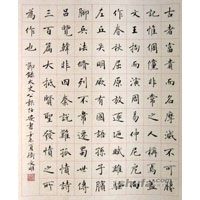 古者富貴而名摩滅不可勝
記唯倜儻非常之人稱焉蓋
文王拘而演周易仲尼厄而
作春秋屈原放逐乃賦離騷
左丘失明厥有國語孫子臏
腳兵法修列不韋遷蜀世傳
呂覽韓非囚秦說難孤憤詩
三百篇大抵聖賢發憤之所
為作也
節錄太史公報任安書